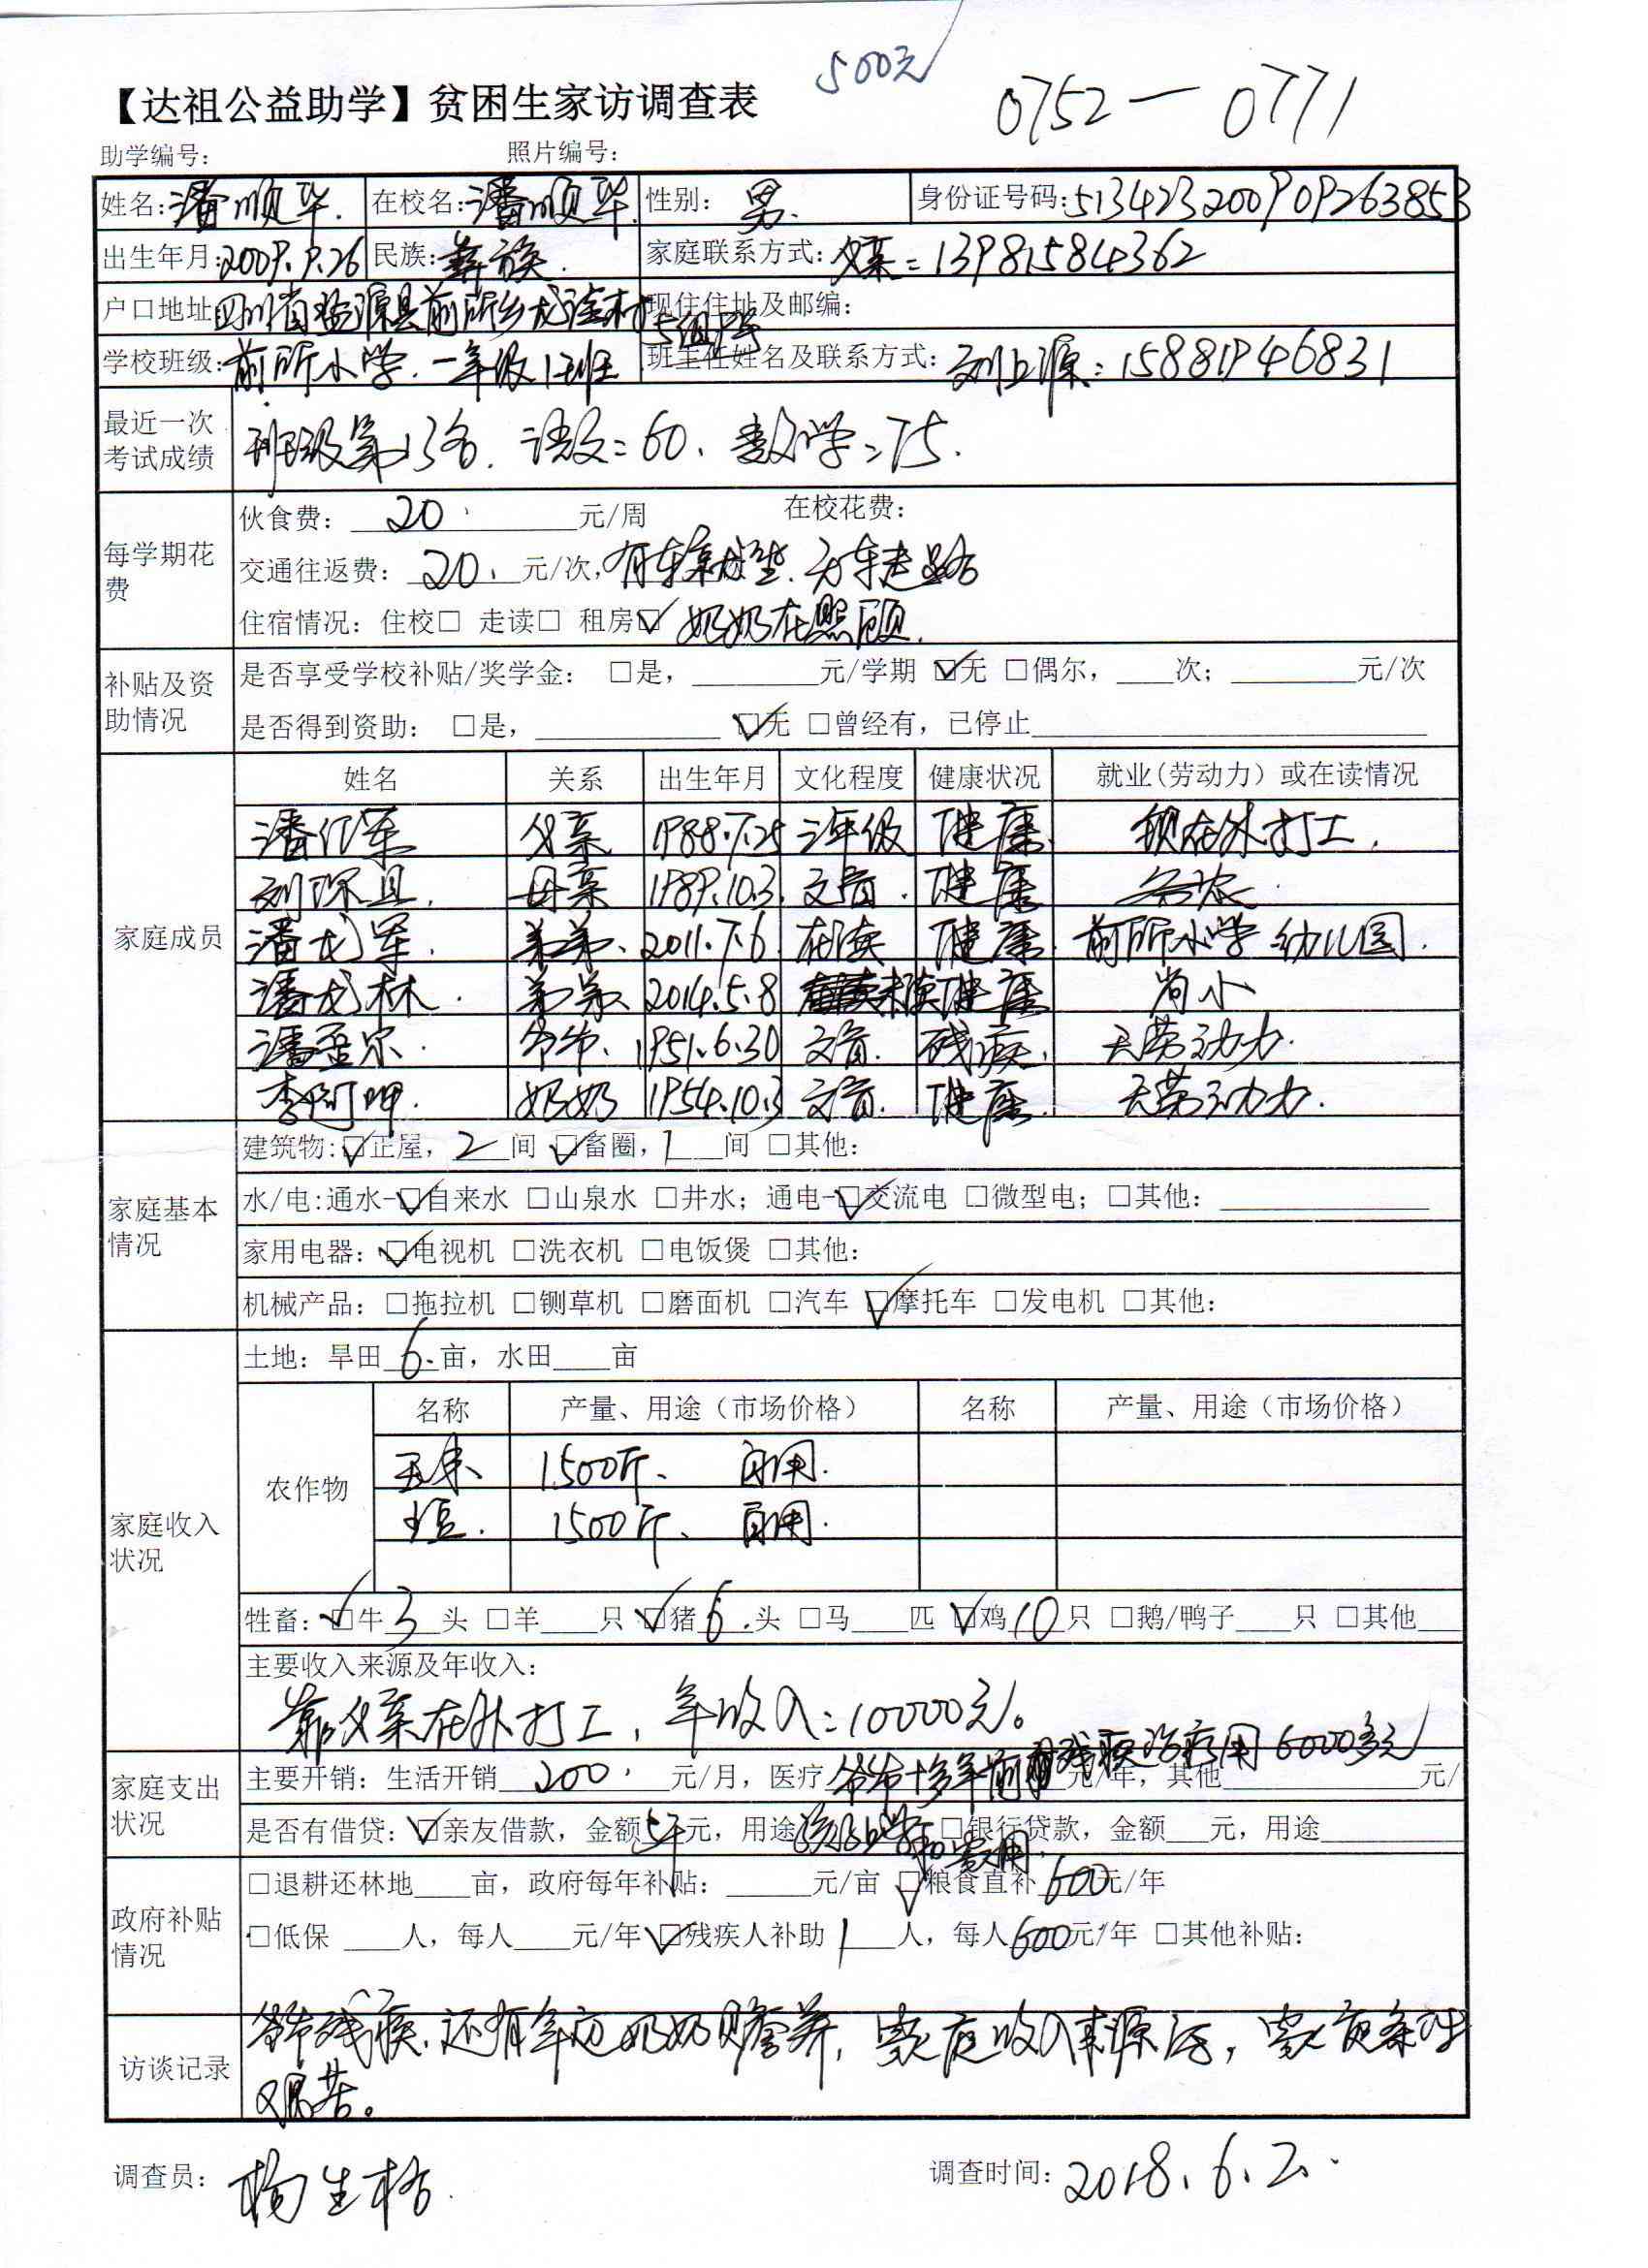 500元
0752—0771
【达祖公益助学】贫困生家访调查表
助学编号： 照片编号：
姓名：潘顺华. 在校名：潘顺华. 性别：男. 身份证号码：513423200909263853
出生年月：2009.9.26 民族：彝族. 家庭联系方式：父亲：13981584362
户口地址 四川省盐源县前所乡龙洼村5组 现住住址及邮编：
学校班级：前所小学.一年级1班 班主任姓名及联系方式：刘上源：15881946831
最近一次考试成绩 班级第13名. 语文：60、数学：75.
每学期花费
伙食费：20元/周 在校花费：
交通往返费：20.元/次，有车乘坐.无车走路
住宿情况：住校□ 走读□ 租房☑ 奶奶在照顾.
补贴及资助情况
是否享受学校补贴/奖学金： □是，____元/学期 ☑无 □偶尔，____次；____元/次
是否得到资助： □是，____ ☑无 □曾经有，已停止____
家庭成员
姓名 关系 出生年月 文化程度 健康状况 就业(劳动力）或在读情况
潘仁军 父亲 1988.7.25 三年级 健康. 现在外打工.
刘深且. 母亲 1989.10.3. 文盲. 健康 务农
潘龙军. 弟弟、 2011.7.6. 在读 健康. 前所小学 幼儿园.
潘龙林. 弟弟、 2014.5.8 未读 健康 尚小
潘歪宗. 爷爷、 1951.6.30 文盲. 残疾. 无劳动力.
李阿呷. 奶奶 1954.10.3 文盲. 健康. 无劳动力.
家庭基本情况
建筑物：☑正屋，2间 ☑畜圈，1间 □其他：
水/电：通水-☑自来水 □山泉水 □井水；通电-☑交流电 □微型电；□其他：____
家用电器：☑电视机 □洗衣机 □电饭煲 □其他：
机械产品：□拖拉机 □铡草机 □磨面机 □汽车 ☑摩托车 □发电机 □其他：
家庭收入状况
土地：旱田6.亩，水田____亩
农作物
名称 产量、用途（市场价格） 名称 产量、用途（市场价格）
玉米、 1500斤、 自用.
土豆. 1500斤、 自用.
牲畜：☑牛3头 □羊____只 ☑猪6.头 □马____匹 ☑鸡10只 □鹅/鸭子____只 □其他____
主要收入来源及年收入：
靠父亲在外打工，年收入：10000元。
家庭支出状况
主要开销：生活开销200.元/月，医疗 爷爷十多年前残疾治疗用6000多元 元/年，其他____元/
是否有借贷：☑亲友借款，金额5千元，用途孩子上学和家用. □银行贷款，金额___元，用途____
政府补贴情况
□退耕还林地____亩，政府每年补贴：____元/亩 ☑粮食直补600元/年
□低保____人，每人____元/年 ☑残疾人补助1人，每人600元/年 □其他补贴：
访谈记录
爷爷残疾.还有年迈奶奶赡养，家庭收入来源 ，家庭条件
艰苦。
调查员：杨生格. 调查时间：2018.6.2.